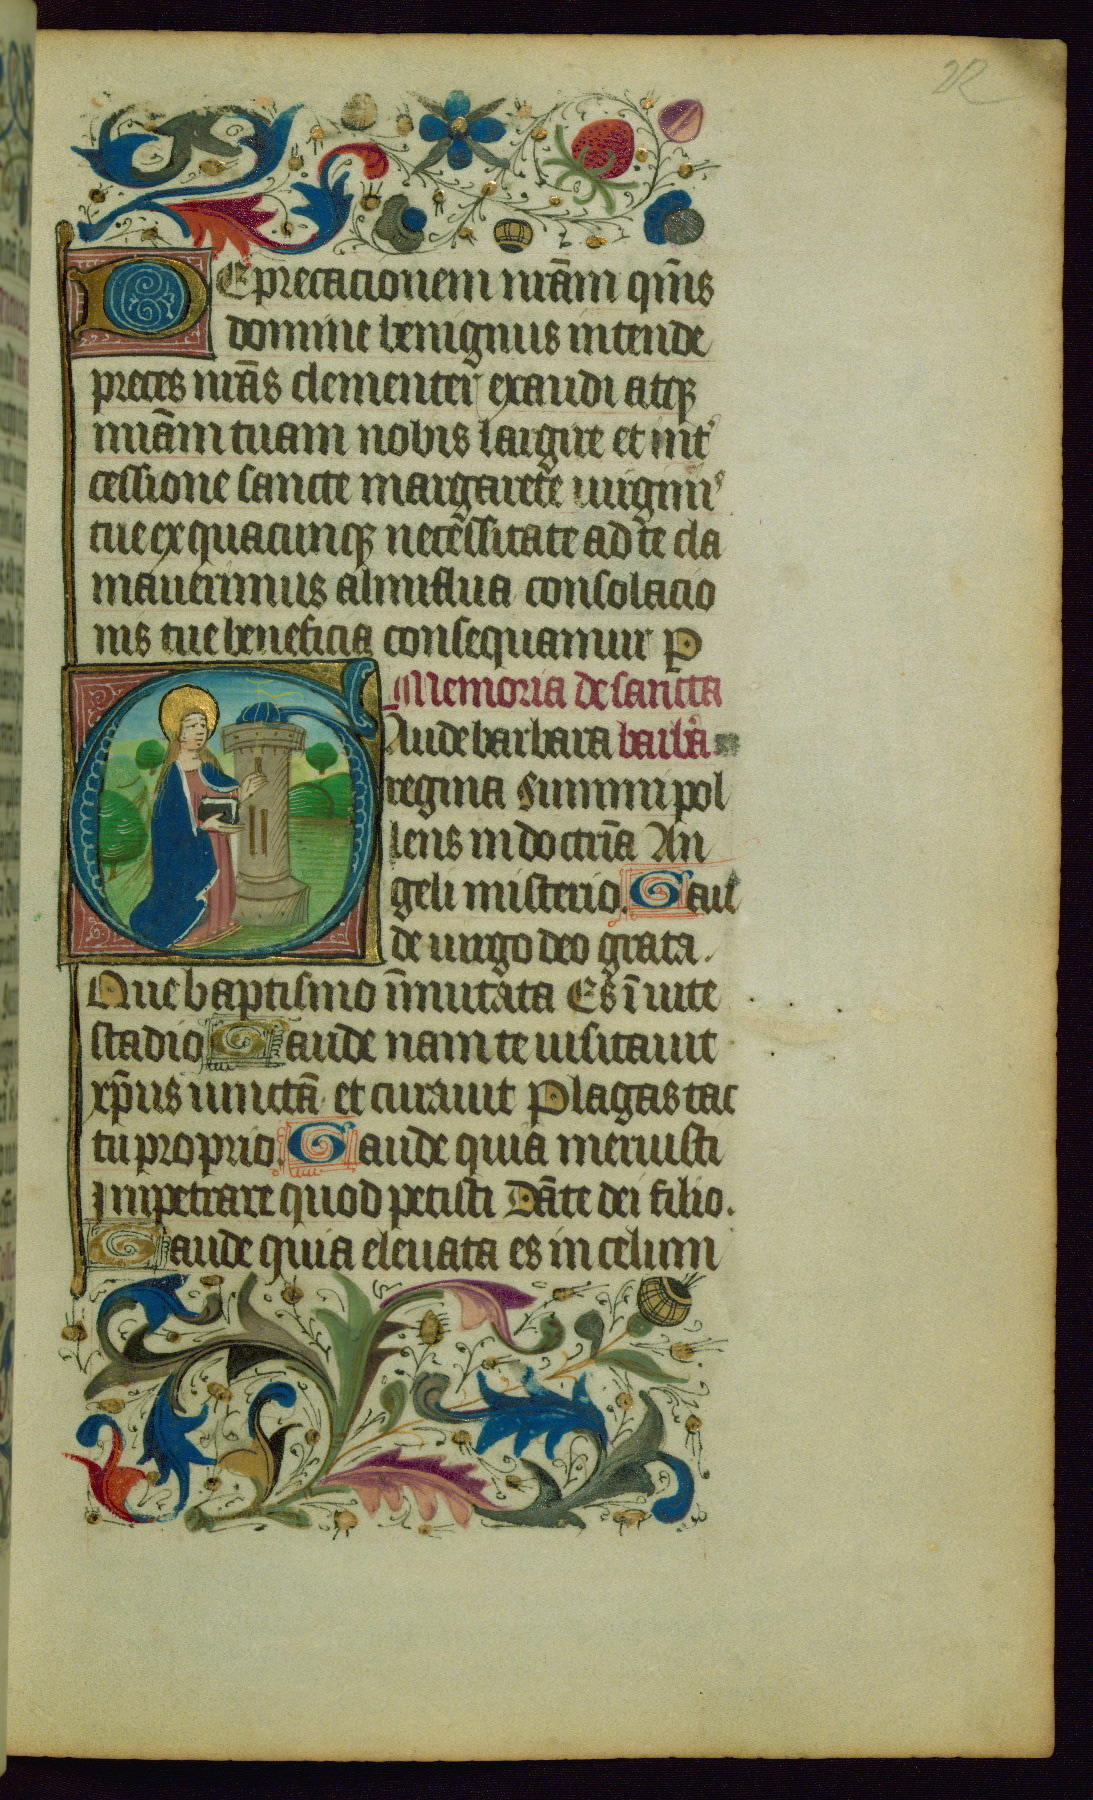 22
Deprecacionem nr̄am qm̄s
domine benignius intende
preces nr̄as clementer exaudi atqꝫ
mīam tuam nobis largire et int᷑
cessione sancte margarete uirginiꝰ
tue ex quacunqꝫ necessitate ad te cla
mauerimus almiflua consolacio
nis tue beneficia consequamur P
Memoria de sancta
Gaude barbara barbᷓa
regina Summi pol
lens in doctrīa An
geli misterio. Gau
de uirgo deo grata.
Que baptismo īmutata Es ī uite
stadio Gaude nam te uisitauit
xp̄us uinctā et curauit Plagas tac
tu proprio. Gaude quia meruisti
Inpetrare quod petisti Dāte dei filio.
Gaude quia eleuata es in celum